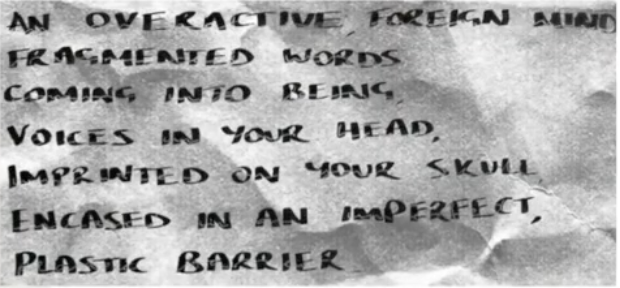 AN OVERACTIVE, FOREIGN MIND
FRAGMENTED WORDS
COMING INTO BEING,
VOICES IN YOUR HEAD,
IMPRINTED ON YOUR SKULL,
ENCASED IN AN IMPERFECT,
PLASTIC BARRIER